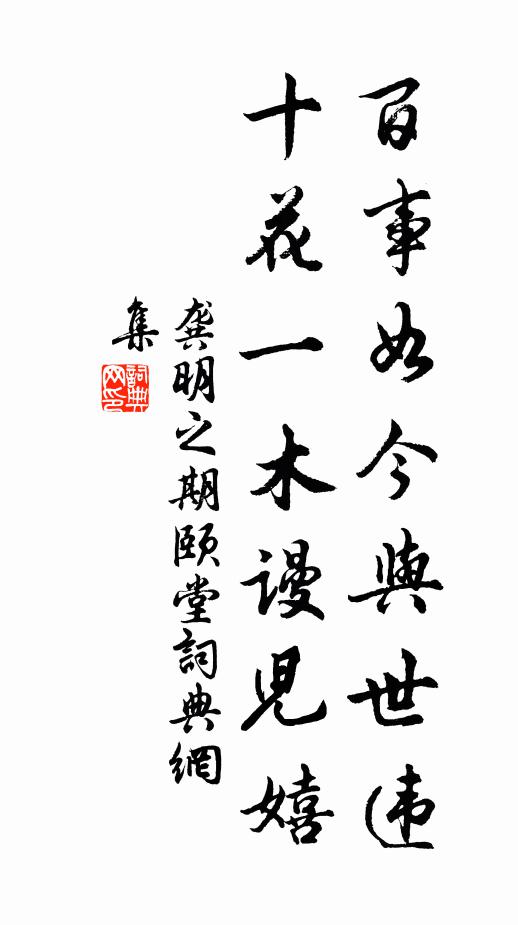 百事如今與世違
十花一木謾兒嬉
龔明之期頤堂詞典網
集
詞典網印